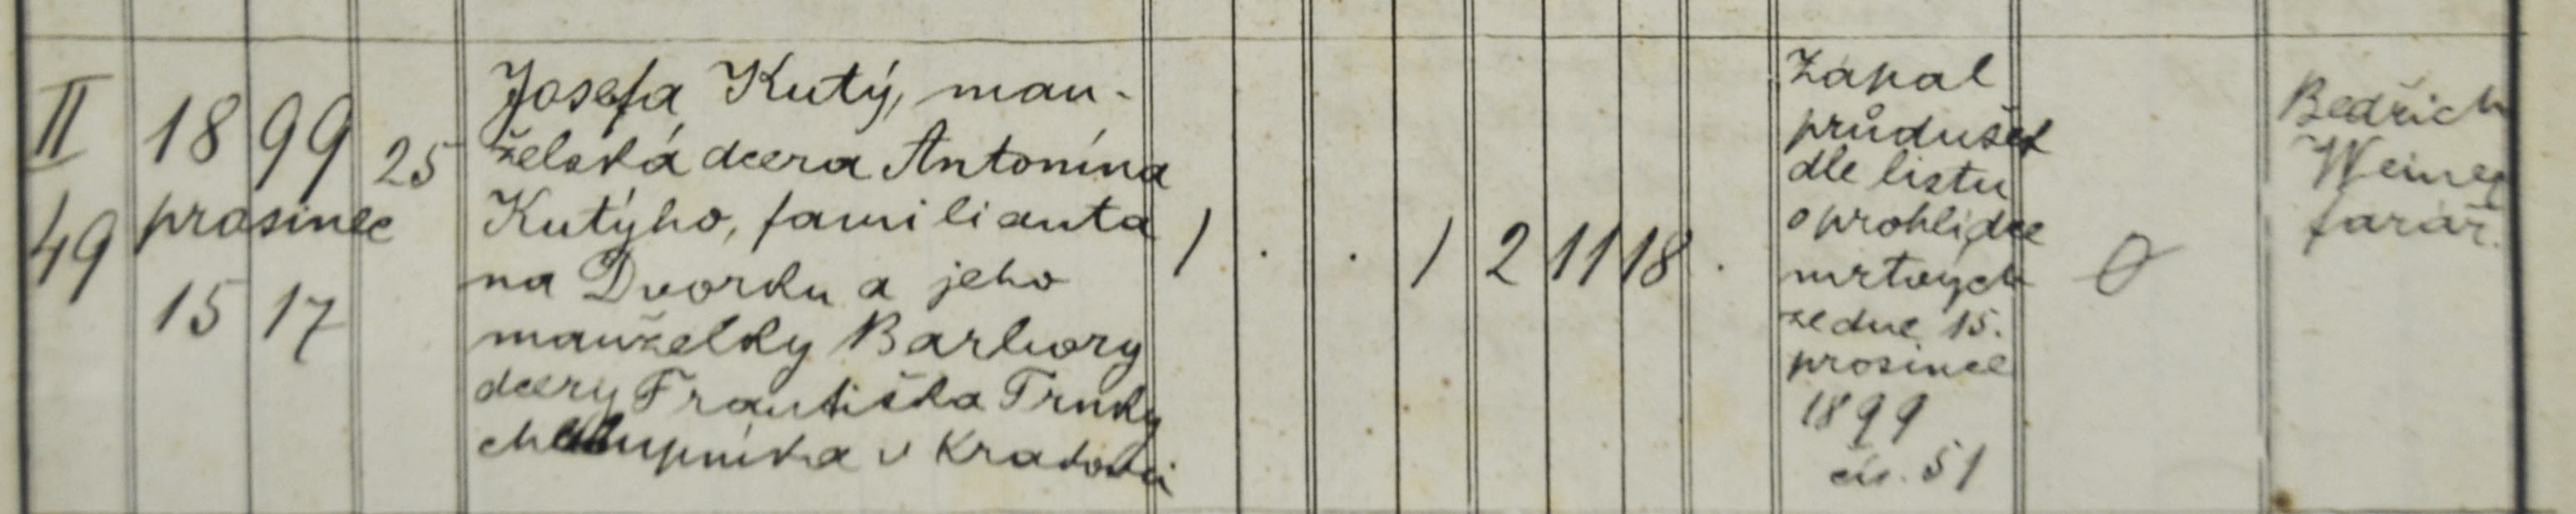 II 18 99 25 Josefa Kutý, man-
želská dcera Antonína
49 prosinec Kutýho, familianta
15 17 na Dvorku a jeho
manželky Barbory
dcery Františka Trnky
chalupníka v Kradově
1 . . 1 2 11 18 .
Zápal
průdušek
dle listu
o prohlídce
mrtvých
ze dne 15.
prosince
1899
čís. 51
0
Bedřich
farář.